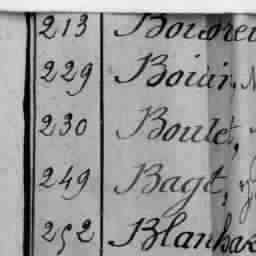 213 Bouvrei
229 Boivin, N
230 Boulet,
249 Bagt,
252 Blanhar